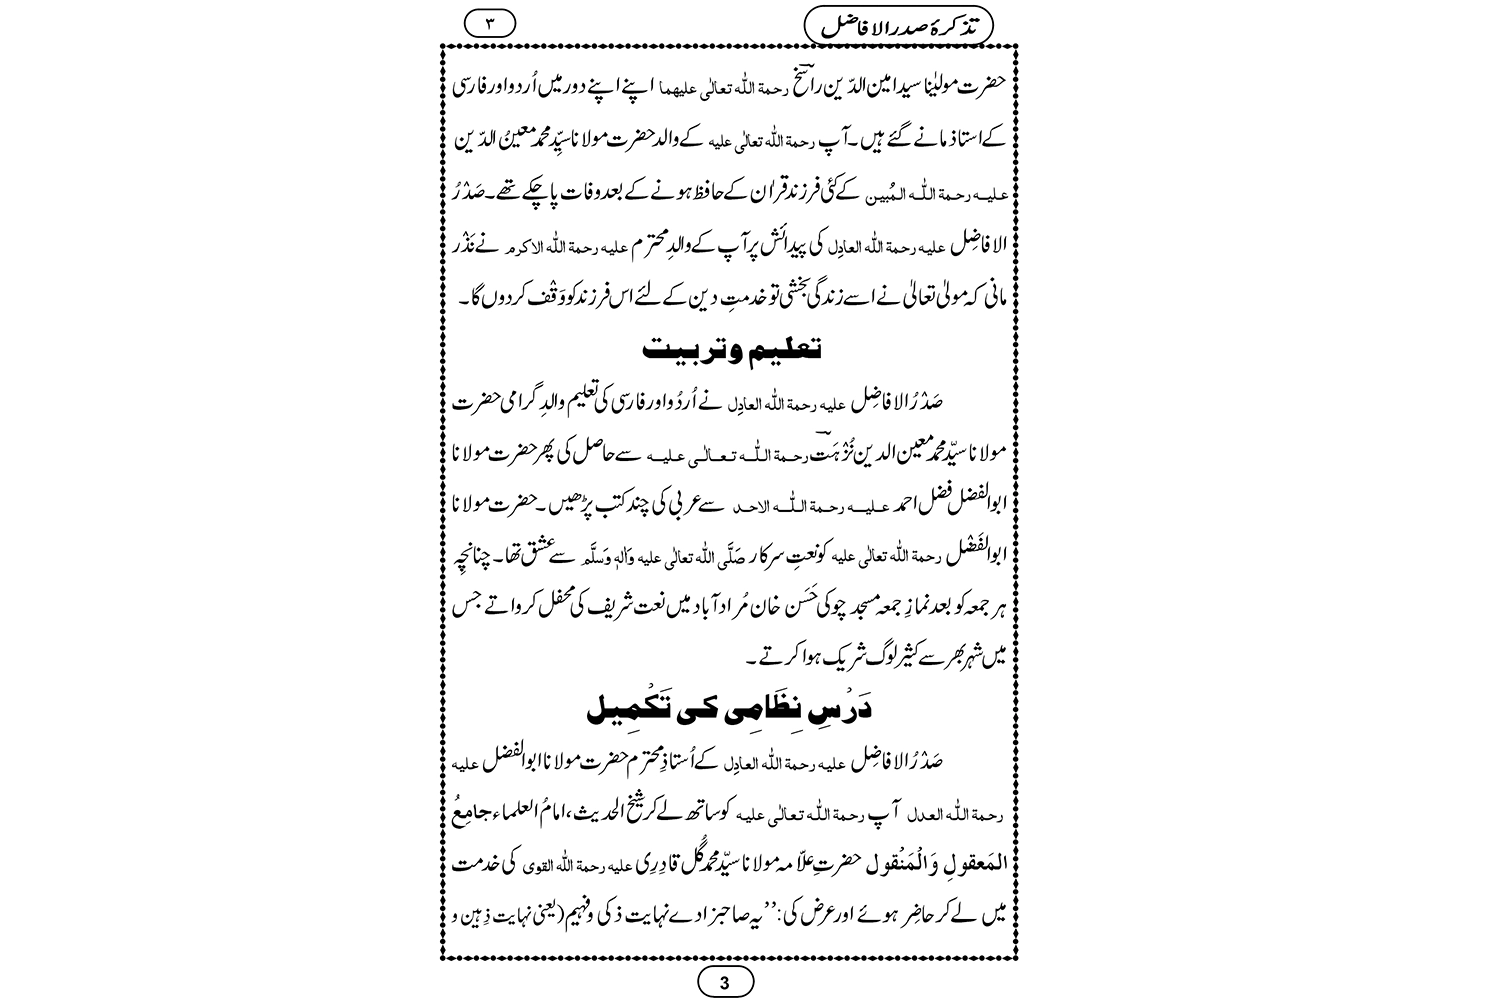 تذکرۂ صدر الافاضل
۳
حضرت مولیٰنا سید امین الدّین راسخؔ رحمة اللّٰه تعالٰی علیهما اپنے اپنے دور میں اُردو اور فارسی
کے استاذ مانے گئے ہیں۔ آپ رحمة اللّٰه تعالٰی علیه کے والد حضرت مولانا سیِّد محمد معینُ الدّین
علیه رحمة اللّٰه المُبین کے کئی فرزند قراٰن کے حافظ ہونے کے بعد وفات پا چکے تھے۔ صَدْرُ
الافاضِل علیه رحمة اللّٰه العادِل کی پیدائش پر آپ کے والدِ محترم علیه رحمة اللّٰه الاکرم نے نَذْر
مانی کہ مولیٰ تعالیٰ نے اسے زندگی بخشی تو خدمتِ دین کے لئے اس فرزند کو وَقْف کردوں گا۔
تعلیم و تربیت
صَدْرُ الافاضِل علیه رحمة اللّٰه العادِل نے اُردُو اور فارسی کی تعلیم والدِ گرامی حضرت
مولانا سیّد محمد معین الدین نُزْہَتؔ رحمة اللّٰه تعالٰی علیه سے حاصل کی پھر حضرت مولانا
ابوالفضل فضل احمد علیه رحمة اللّٰه الاحد سے عربی کی چند کتب پڑھیں۔ حضرت مولانا
ابوالفَضْل رحمة اللّٰه تعالٰی علیه کو نعتِ سرکار صَلَّی اللّٰه تعالٰی علیه وَاٰلہٖ وَسلَّم سے عشق تھا۔ چنانچِہ
ہر جمعہ کو بعد نمازِ جمعہ مسجد چوکی حَسَن خان مُراد آباد میں نعت شریف کی محفل کرواتے جس
میں شہر بھر سے کثیر لوگ شریک ہوا کرتے۔
دَرْسِ نِظَامِی کی تَکْمِیل
صَدْرُ الافاضِل علیه رحمة اللّٰه العادِل کے اُستاذِ محترم حضرت مولانا ابوالفضل علیه
رحمة اللّٰه العدل آپ رحمة اللّٰه تعالٰی علیه کو ساتھ لے کر شیخُ الحدیث، امامُ العلماء جامِعُ
المَعقولِ وَالْمَنْقول حضرتِ علّامہ مولانا سیّد محمد گُل قادِرِی علیه رحمة اللّٰه القوی کی خدمت
میں لے کر حاضِر ہوئے اور عرض کی: ’’یہ صاحبزادے نہایت ذکی و فہیم (یعنی نہایت ذِہین و
3